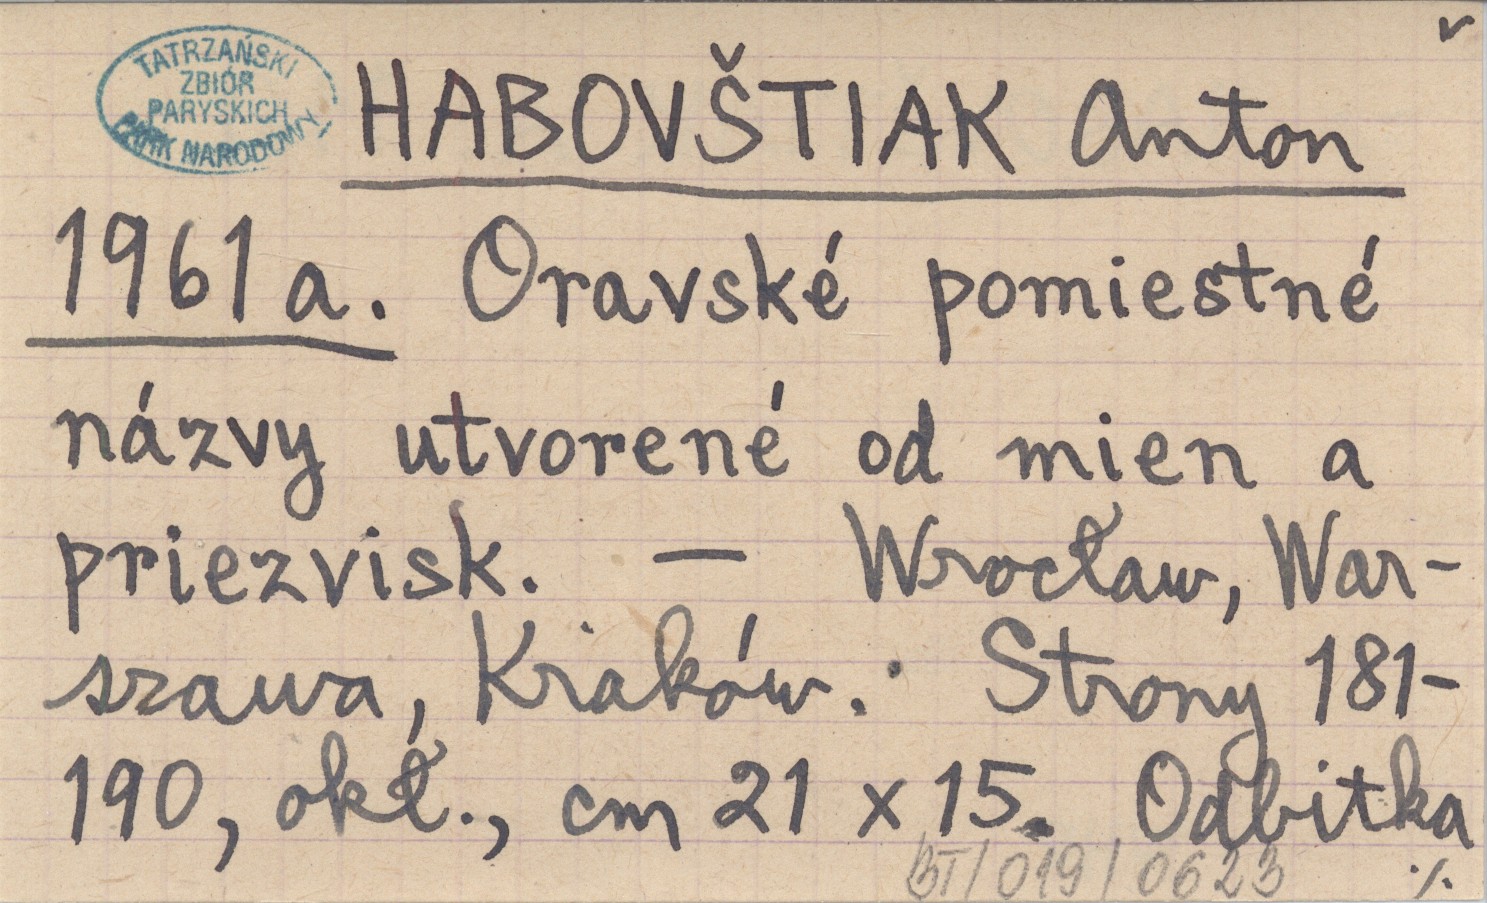 TATRZAŃSKI
ZBIÓR
PARYSKICH
PARK NARODOWY
HABOVŠTIAK Anton
1961a. Oravské pomiestné
názvy utvorené od mien a
priezvisk. — Wrocław, War-
szawa, Kraków. Strony 181-
190, okł., cm 21 x 15. Odbitka
BT/019/0623
./.